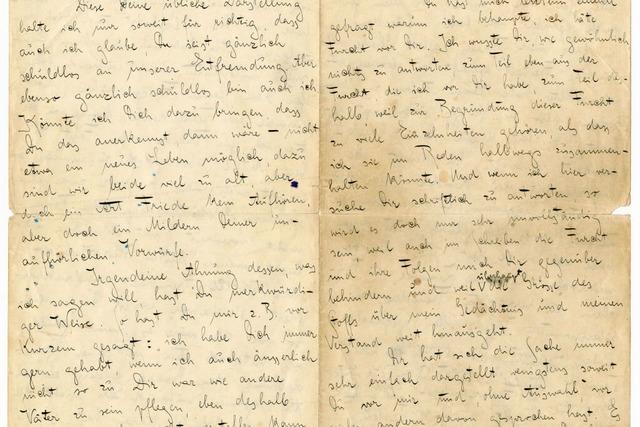 Diese Deine übliche Darstellung
halte ich nur soweit für richtig dass
auch ich glaube, Du seist gänzlich
schuldlos an unserer Entfremdung. Aber
ebenso gänzlich schuldlos bin auch ich.
Könnte ich Dich dazu bringen, dass
Du das anerkennst dann wäre – nicht
etwa ein neues Leben möglich, dazu
sind wir beide viel zu alt aber
doch eine Art Friede, kein Aufhören,
aber doch ein Mildern Deiner un-
aufhörlichen Vorwürfe.
Irgendeine Ahnung dessen, was
ich sagen will hast Du merkwürdi-
ger Weise. So hast Du mir z.B. vor
Kurzem gesagt: ich habe Dich immer
gern gehabt, wenn ich auch äusserlich
nicht so zu Dir war wie andere
Väter zu sein pflegen, eben deshalb
kann
Du hast mich letzthin einmal
gefragt warum ich behaupte, ich hätte
Furcht vor Dir. Ich wusste Dir, wie gewöhnlich
nichts zu antworten zum Teil eben aus der
Furcht die ich vor Dir habe, zum Teil des-
halb weil zur Begründung dieser Furcht
zu viele Einzelnheiten gehören, als dass
ich sie im Reden halbwegs zusammen-
halten könnte. Und wenn ich hier ver-
suche Dir schriftlich zu antworten so
wird es doch nur sehr unvollständig
sein, weil auch im Schreiben die Furcht
und ihre Folgen mich Dir gegenüber
behindern und weil überhaupt die Grösse des
Stoffs über mein Gedächtnis und meinen
Verstand weit hinausgeht.
Dir hat sich die Sache immer
sehr einfach dargestellt wenigstens soweit
Du vor mir und ohne Auswahl vor
andern davon gesprochen hast. Es